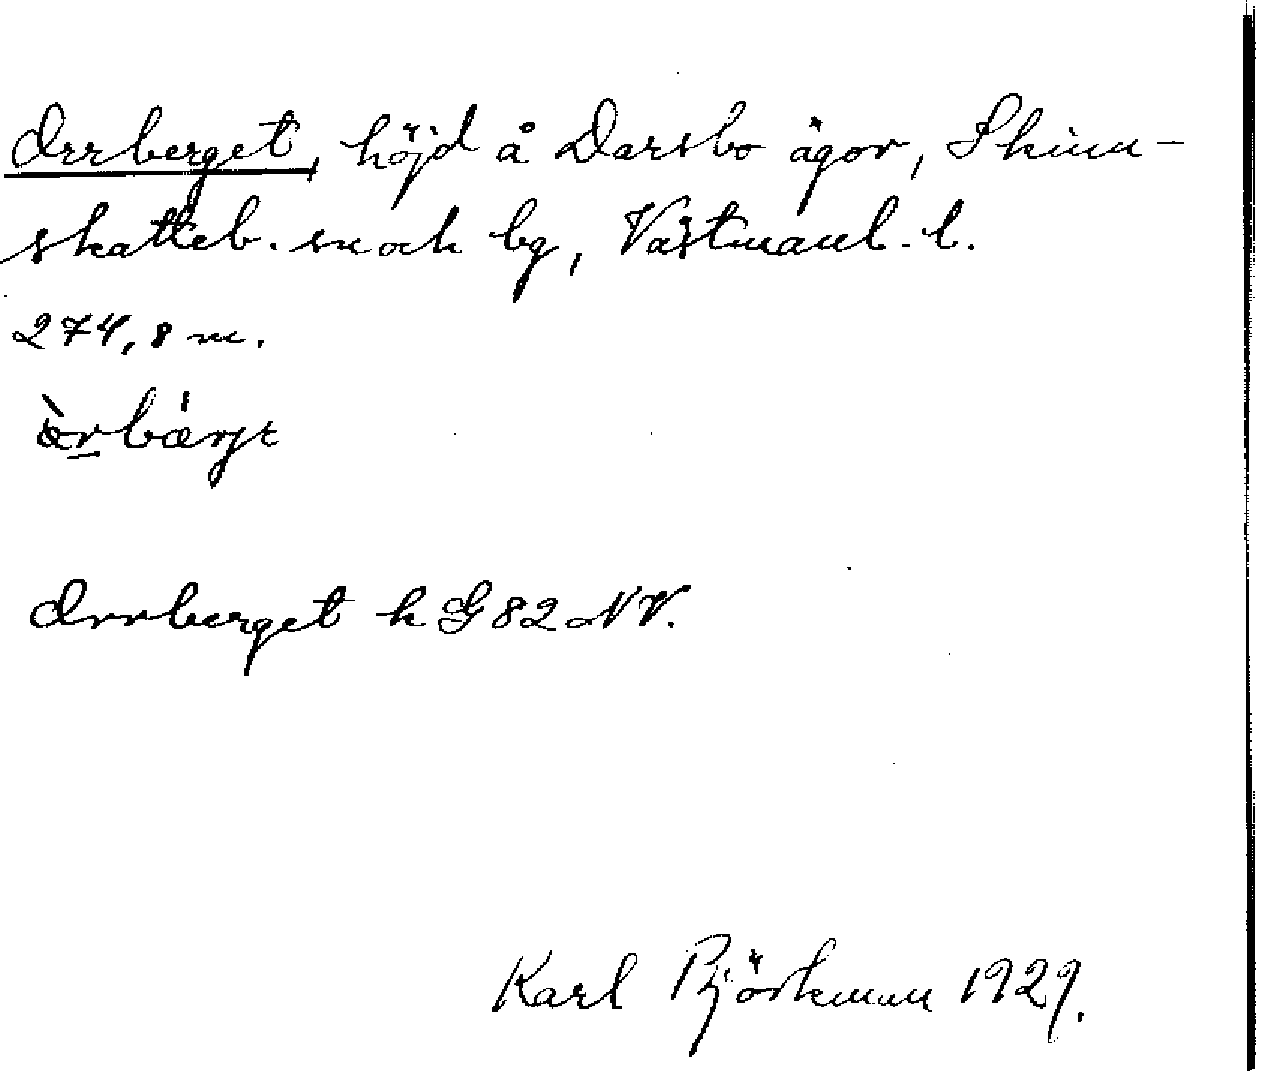 Orrberget, höjd å Darsbo ägor, Skinn-
skatteb. sn och bg, Västmanl. l.
274,8 m.
Orrberget h G 82 NV.
Karl Björkman 1929.